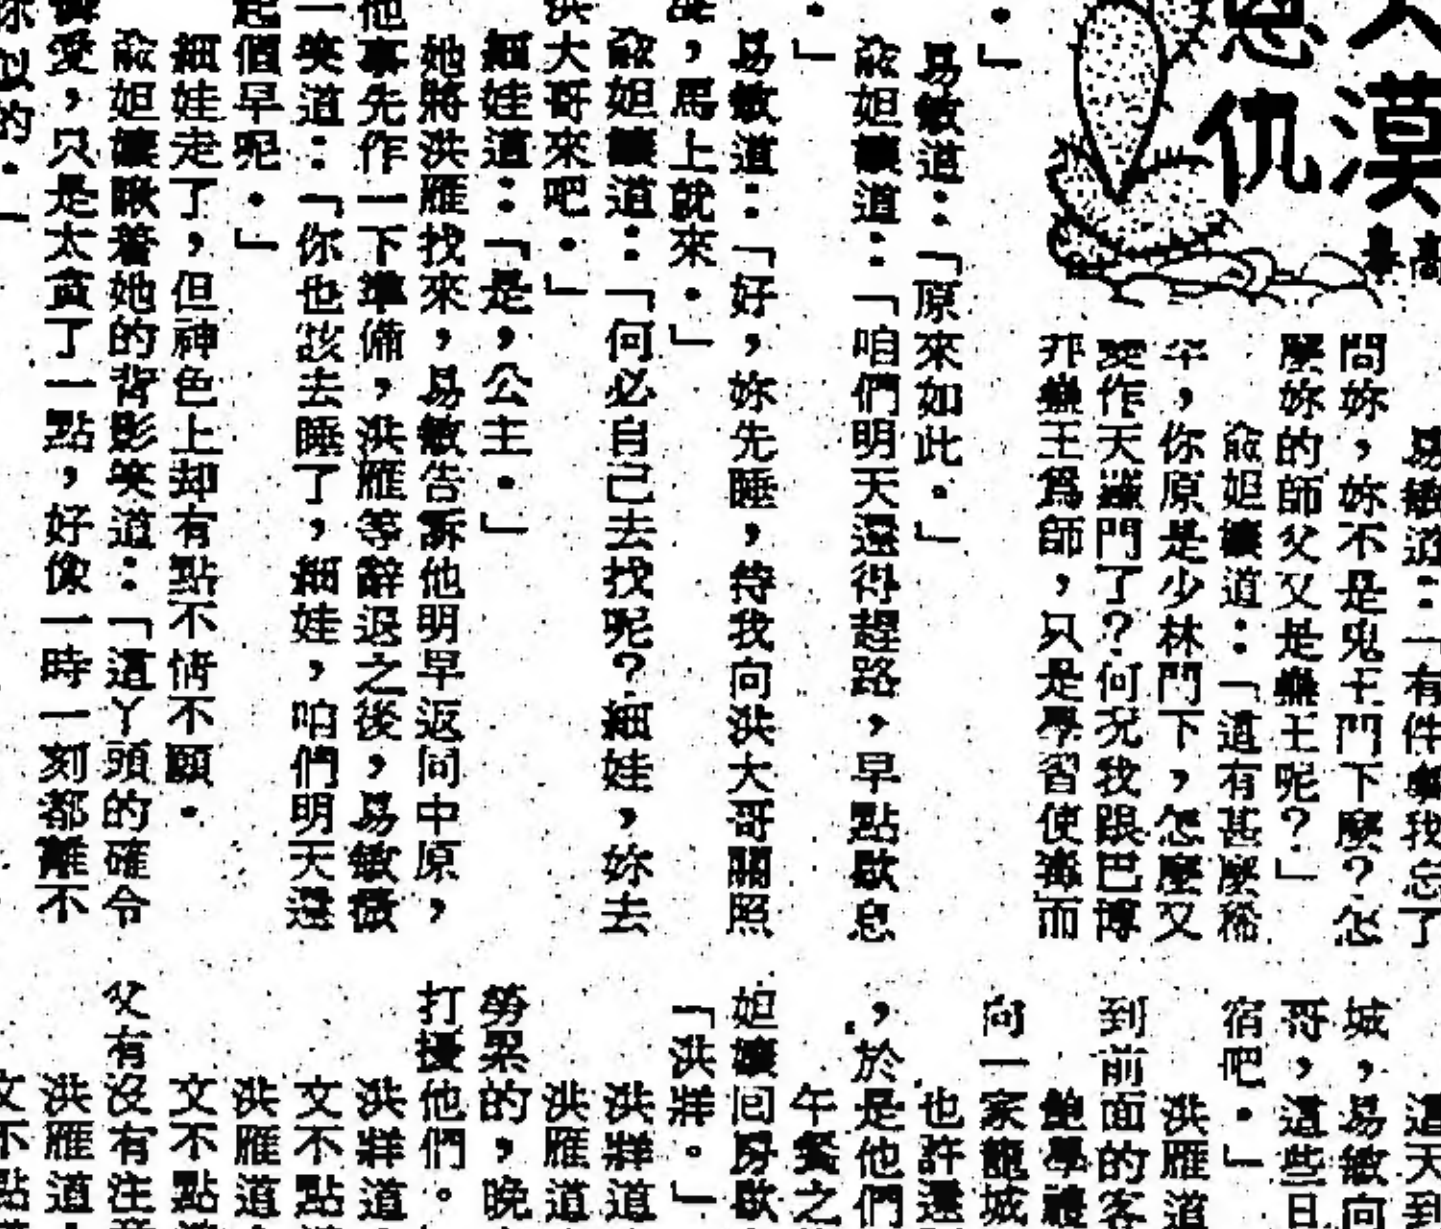 大漠
恩仇
易敏道：「有件事我忘了
問妳，妳不是鬼王門下麼？怎
麼妳的師父又是蠱王呢？」
俞妲讓道：「這有甚麼稀
罕，你原是少林門下，怎麼又
變作天羅門了？何況我跟巴博
拜蠱王爲師，只是學習使毒而
．」
易敏道：「原來如此。」
俞妲讓道：「咱們明天還得趕路，早點歇息
．」
易敏道：「好，妳先睡，待我向洪大哥關照
，馬上就來．」
俞妲讓道：「何必自己去找呢？細娃，妳去
洪大哥來吧．」
細娃道：「是，公主．」
她將洪雁找來，易敏告訴他明早返回中原，
他事先作一下準備，洪雁等辭退之後，易敏微
一笑道：「你也該去睡了，細娃，咱們明天還
起個早呢．」
細娃走了，但神色上却有點不情不願．
俞妲讓瞅着她的背影笑道：「這丫頭的確令
愛，只是太貪了一點，好像一時一刻都離不
你似的．」
這天到
城，易敏向
哥，這些日
宿吧．」
洪雁道
到前面的客
鮑學禮
向一家龍城
也許還
，於是他們
午餐之
妲讓回房歇
「洪牂。」
洪牂道
洪雁道
勞累的，晚
打擾他們。
洪牂道
文不點
洪雁道
文不點
父有沒有注意
洪雁道
文不點